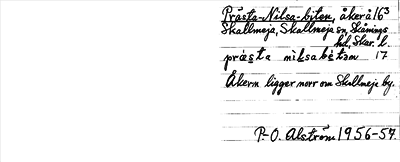 Prästa-Nilsa-biten, åker å 16³
Skallmeja, Skallmeja sn, Skånings
hd, Skar. l.
præsta nilsabetən 17
Åkern ligger norr om Skallmeja by.
P.-O. Alström 1956-57.